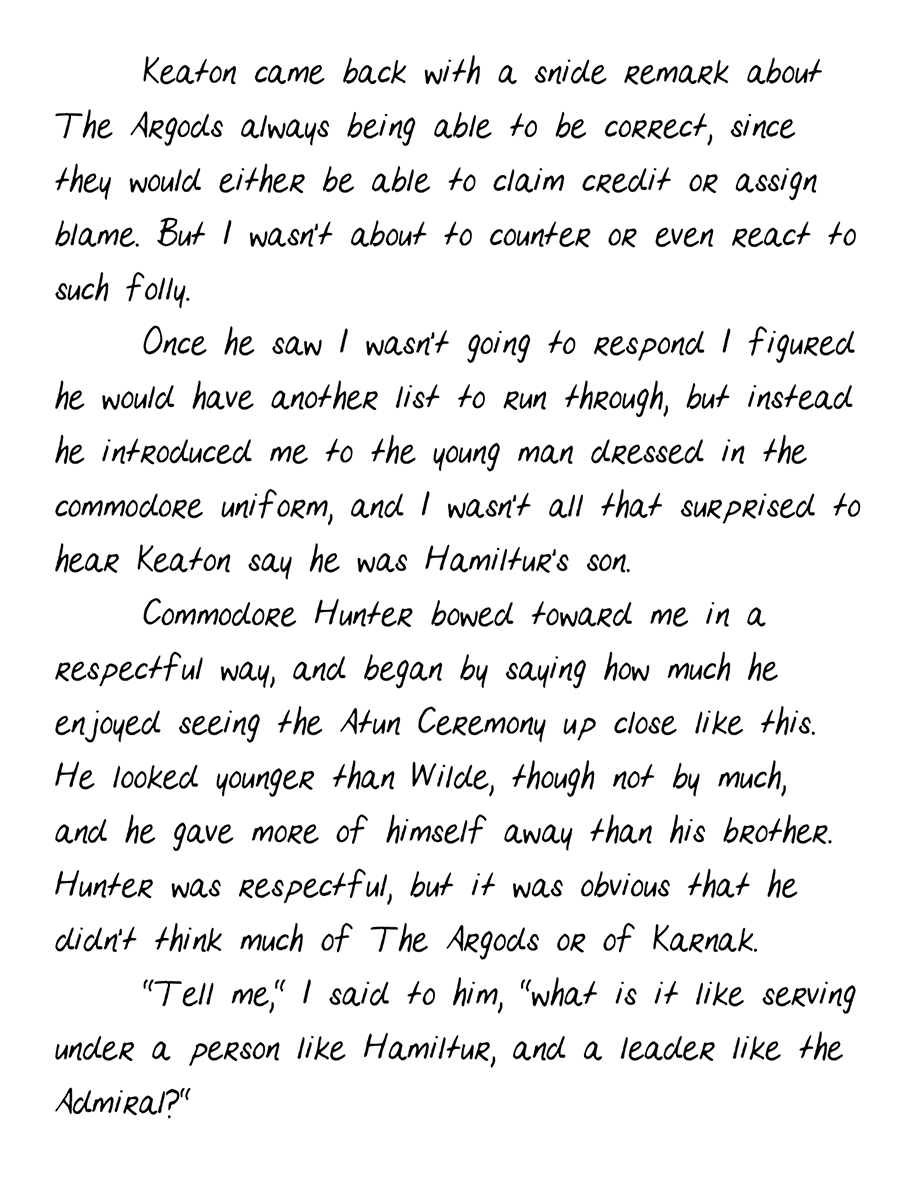 Keaton came back with a snide remark about
The Argods always being able to be correct, since
they would either be able to claim credit or assign
blame. But I wasn't about to counter or even react to
such folly.
Once he saw I wasn't going to respond I figured
he would have another list to run through, but instead
he introduced me to the young man dressed in the
commodore uniform, and I wasn't all that surprised to
hear Keaton say he was Hamiltur's son.
Commodore Hunter bowed toward me in a
respectful way, and began by saying how much he
enjoyed seeing the Atun Ceremony up close like this.
He looked younger than Wilde, though not by much,
and he gave more of himself away than his brother.
Hunter was respectful, but it was obvious that he
didn't think much of The Argods or of Karnak.
"Tell me," I said to him, "what is it like serving
under a person like Hamiltur, and a leader like the
Admiral?"